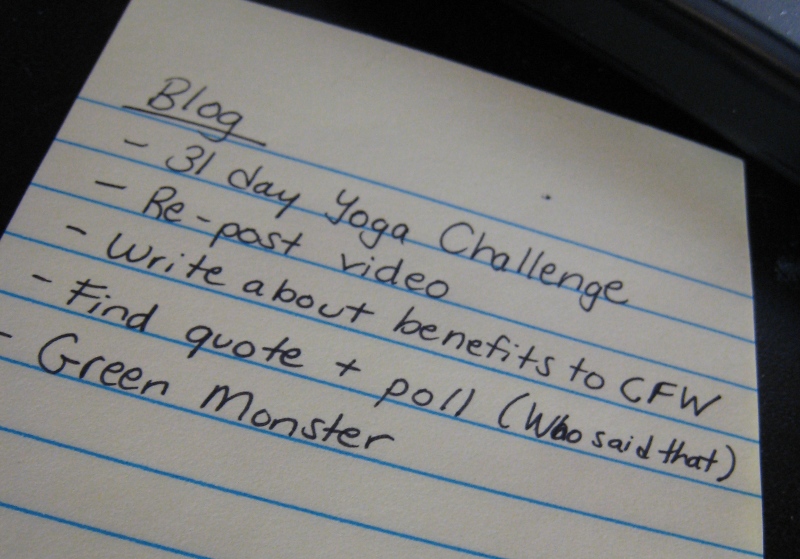 Blog
- 31 day Yoga Challenge
- Re-post video
- Write about benefits to CFW
- Find quote + poll (Who said that)
- Green Monster